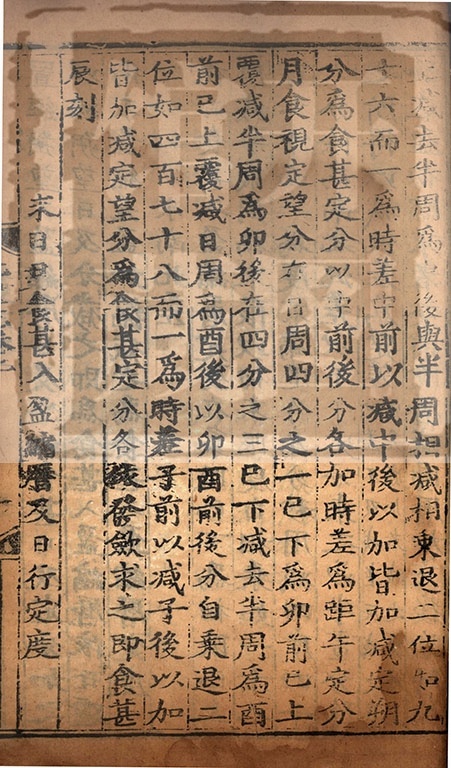 上減去半周爲中後與半周相減相東退二位如九
十六而一爲時差中前以減中後以加皆加減定朔
分爲食甚定分以中前後分各加時差爲距午定分
月食視定望分在日周四分之一已下爲卯前已上
覆減半周爲卯後在四分之三已下減去半周爲酉
前已上覆減日周爲酉後以卯酉前後分自乘退二
位如四百七十八而一爲時差子前以減子後以加
皆加減定望分爲食甚定分各依發斂求之即食甚
辰刻
求日月食甚入盈縮曆及日行定度